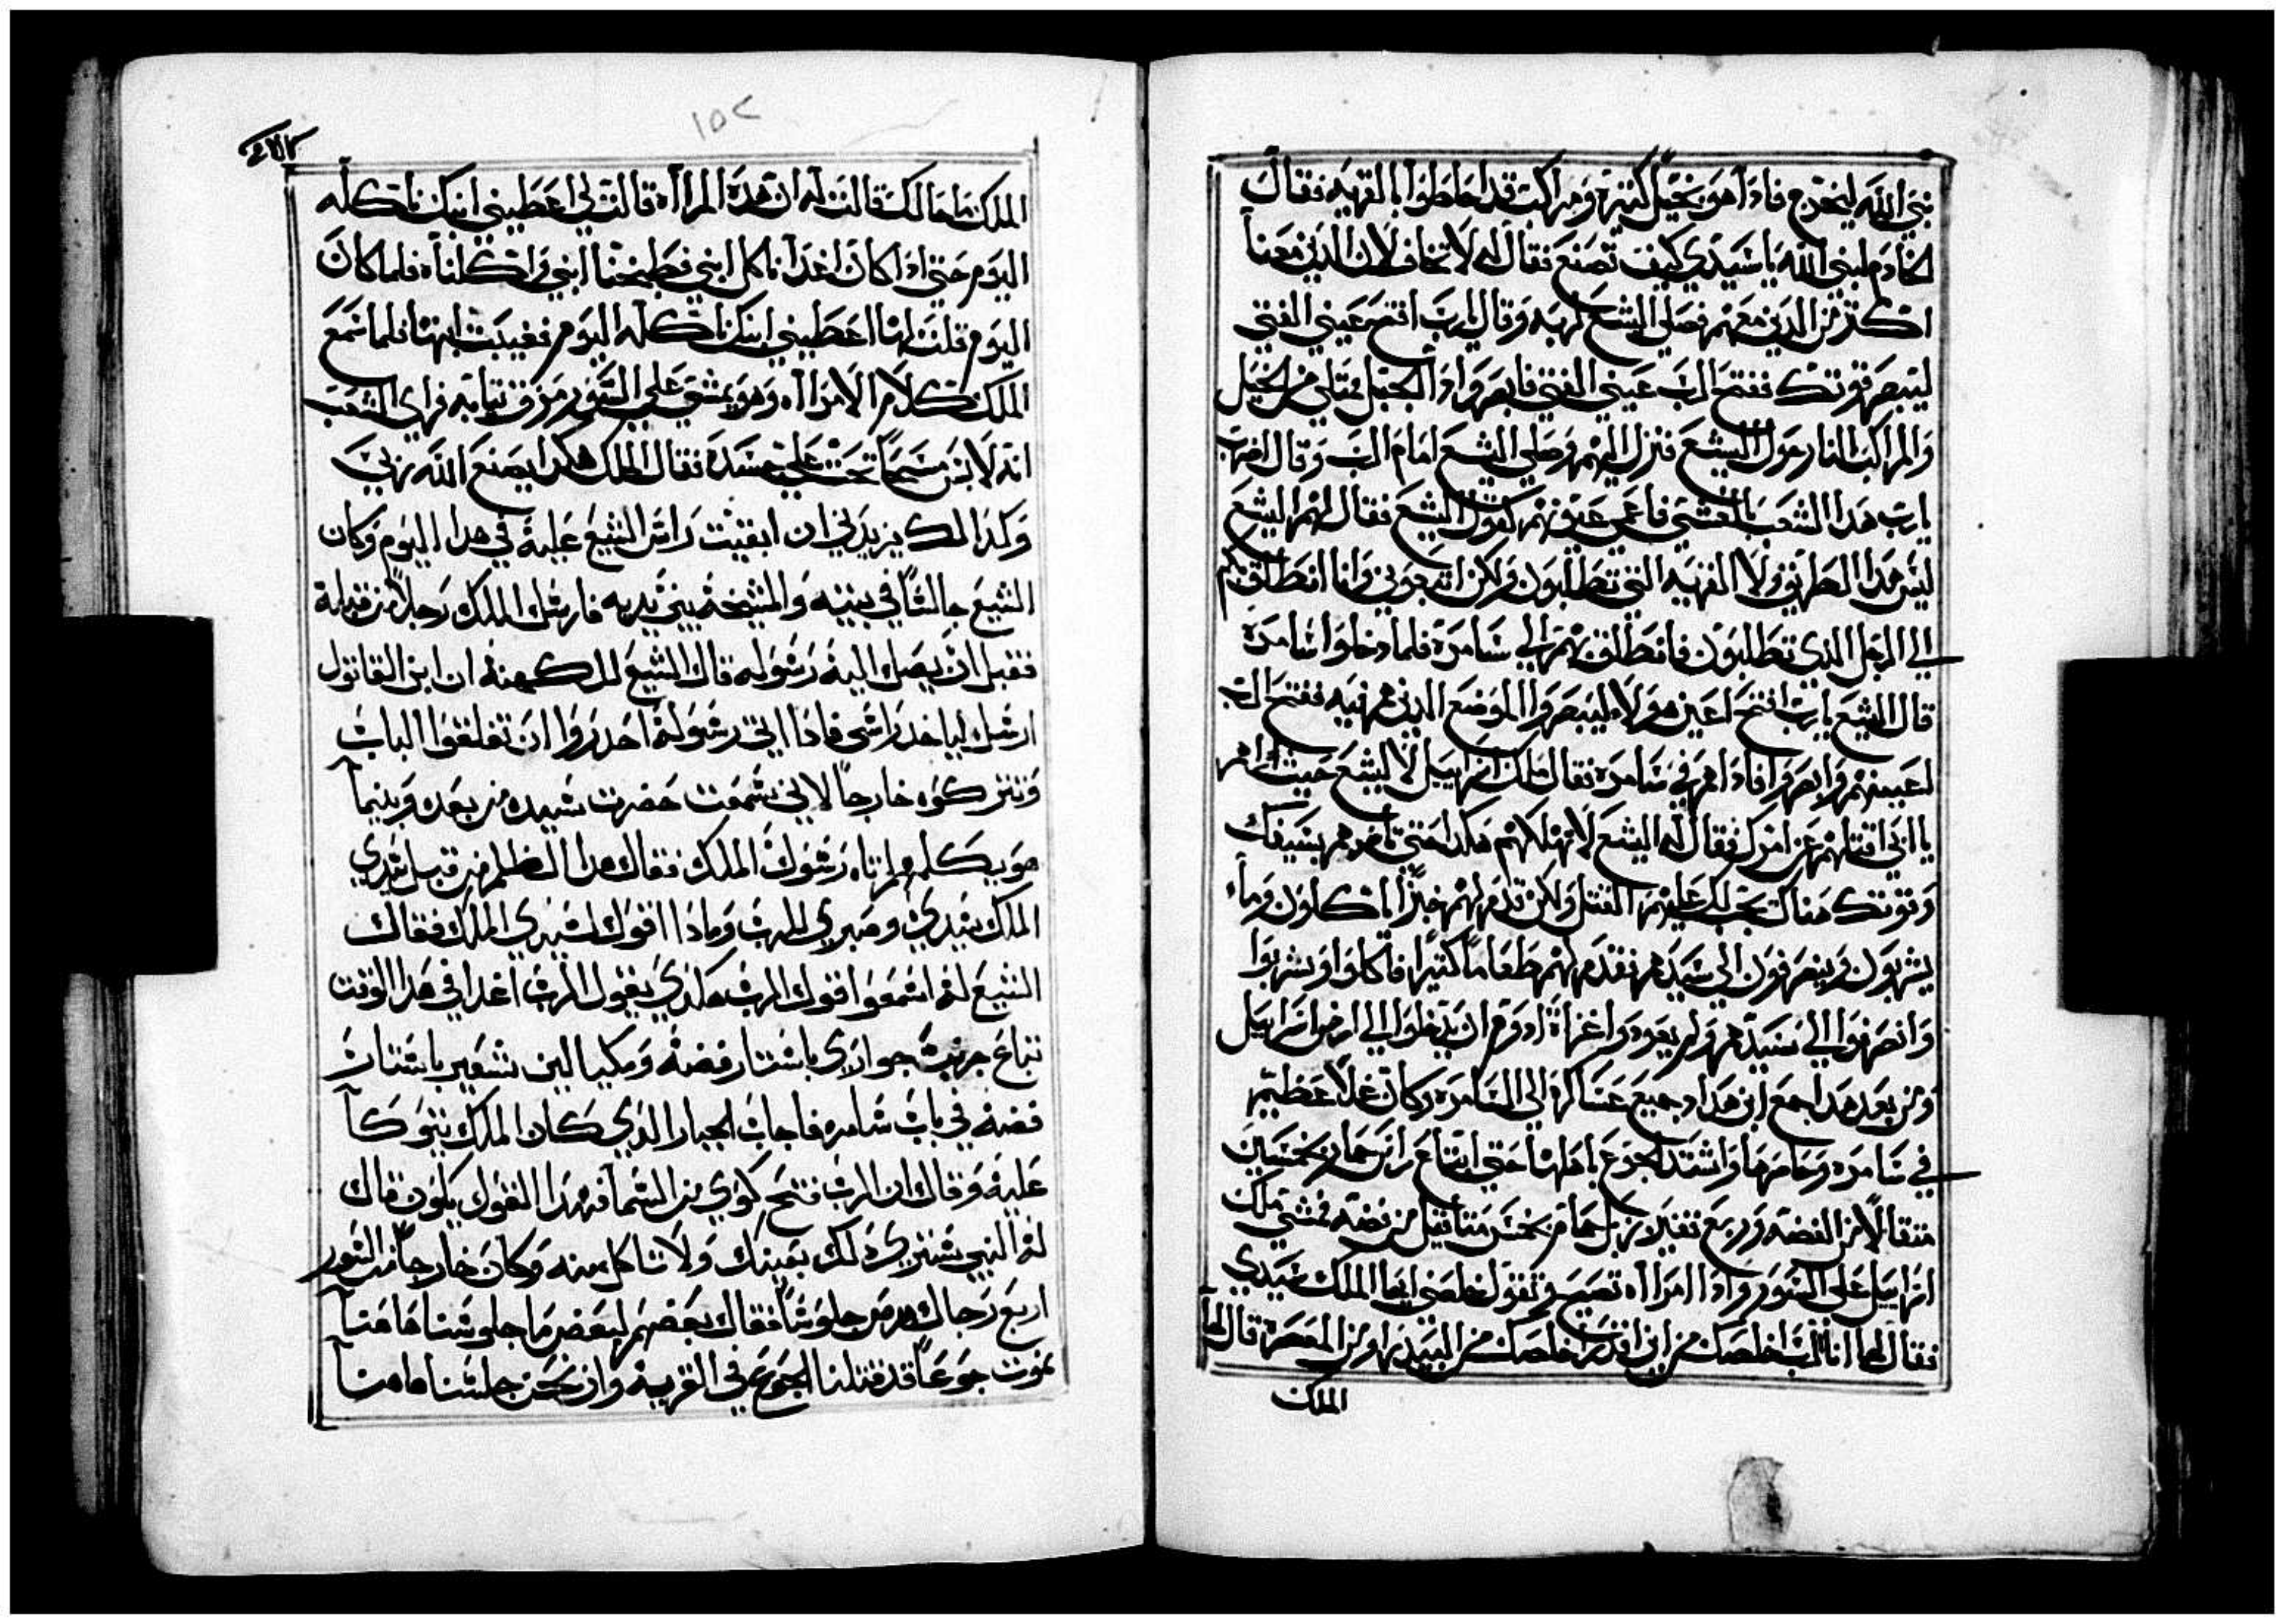 نبي الله ليخرج فاذا هو بخيل كتيره ومراكب قد احاطوا بالقريه فقال
الخادم لنبي الله ياسيدي كيف تصنع فقال له لا تخاف لان الدين معنا
اكتر من الدين معهم فصلي اليشع لربه وقال يارب افتح عيني الفتي
ليبصر قوتك ففتح الرب عيني الفتي فابصر واذا الجبل ممتلي من الخيل
والمراكب النار حول اليشع فنزل اليهم وصلي اليشع امام الرب وقال اضرب
يارب هدا الشعب بالعشي فاعمي عيونهم كقول اليشع فقال لهم اليشع
ليس هدا الطريق ولا القريه التي تطلبون ولكن اتبعوني وانا انطلق بكم
الي الرجل الدي تطلبون فانطلق بهم الي سامره فلما دخلوا سامره
قال اليشع يارب افتح اعين هولاء ليبصروا الموضع الدين هم فيه ففتح الرب
اعينهم وابصروا فاداهم في سامره فقال ملك اسراييل لاليشع حيت راهم
يا ابي اقتلهم عن امرك فقال له اليشع لا تهلكهم هكدا حتي تاخدهم بسيفك
وقوتك هناك يجب لك عليهم القتل ولكن قدم لهم خبزا ياكلون وماء
يشربون وينصرفون الي سيدهم فقدم لهم طعاما كتيرا فاكلوا وشربوا
وانصرفوا الي سيدهم ولم يعودوا غزاة ادوم ان يدخلوا الي ارض اسراييل
ومن بعد هدا جمع ابن هداد جميع عساكره الي السامره وكان غلا عظيم
في سامره وحاصرها واشتد الجوع باهلها حتي ابتاع راس حمار بخمسين
متقالا من الفضه وربع تفيز من زبل حمام بخمس متاقيل من فضه فمشي ملك
اسراييل علي السور واذا امراه تصيح وتقول خلصني ايها الملك سيدي
فقال لها انا الرب اخلصك من اين اقدر اخلصك من البيدر او من المعصره قال لها
الملك
١٥٢
الملك ما مالك قالت له ان هده المراه قالت لي اعطيني ابنك ناكله
اليوم حتي اذا كان اغدا ناكل ابني فطبخنا ابني واكلناه فلما كان
اليوم قلت لها اعطيني ابنك ناكله اليوم فغيبت ابنها فلما سمع
الملك كلام الامراه وهو يمشي علي السور مزق تيابه فراي الشعب
انه لابس مسحا تحت علي جسده فقال الملك هكدا يصنع الله بي
وكدالك يزيدني ان ابقيت راس اليشع عليه في هدا اليوم وكان
اليشع جالسا في بيته والمشيخه بين يديه فارسل الملك رجلا من قبله
فقبل ان يصل اليه رسوله قال اليشع للكهنه ان ابن القاتول
ارسل لياخد راسي فاذا اتي رسوله احدروا ان تغلقوا الباب
وتتركوه خارجا لاني سمعت حضرت سيده من بعده وبينما
هو يكلمهم اتاه رسول الملك فقال هدا الظلم من قبل سيدي
الملك سيدي وصبري للرب ومادا اقول لسيدي الملك فقال
اليشع له اسمعوا قول الرب هكدي يقول الرب اغدا في هدا الوقت
تباع جريب حواري باستار فضه ومكيالين شعير باستار
فضه في باب سامره فاجاب الجبار الدي كان الملك يتوكا
عليه وقال ان الرب فتح كوي من السما فهدا القول يكون قال
له النبي ستري دلك بعينك ولا تاكل منه وكان خارجا من السور
اربع رجال برص جلوسا فقال بعضهم لبعض ما جلوسنا هاهنا
نموت جوعا قد قتلنا الجوع في القريه وان نحن جلسنا هاهنا